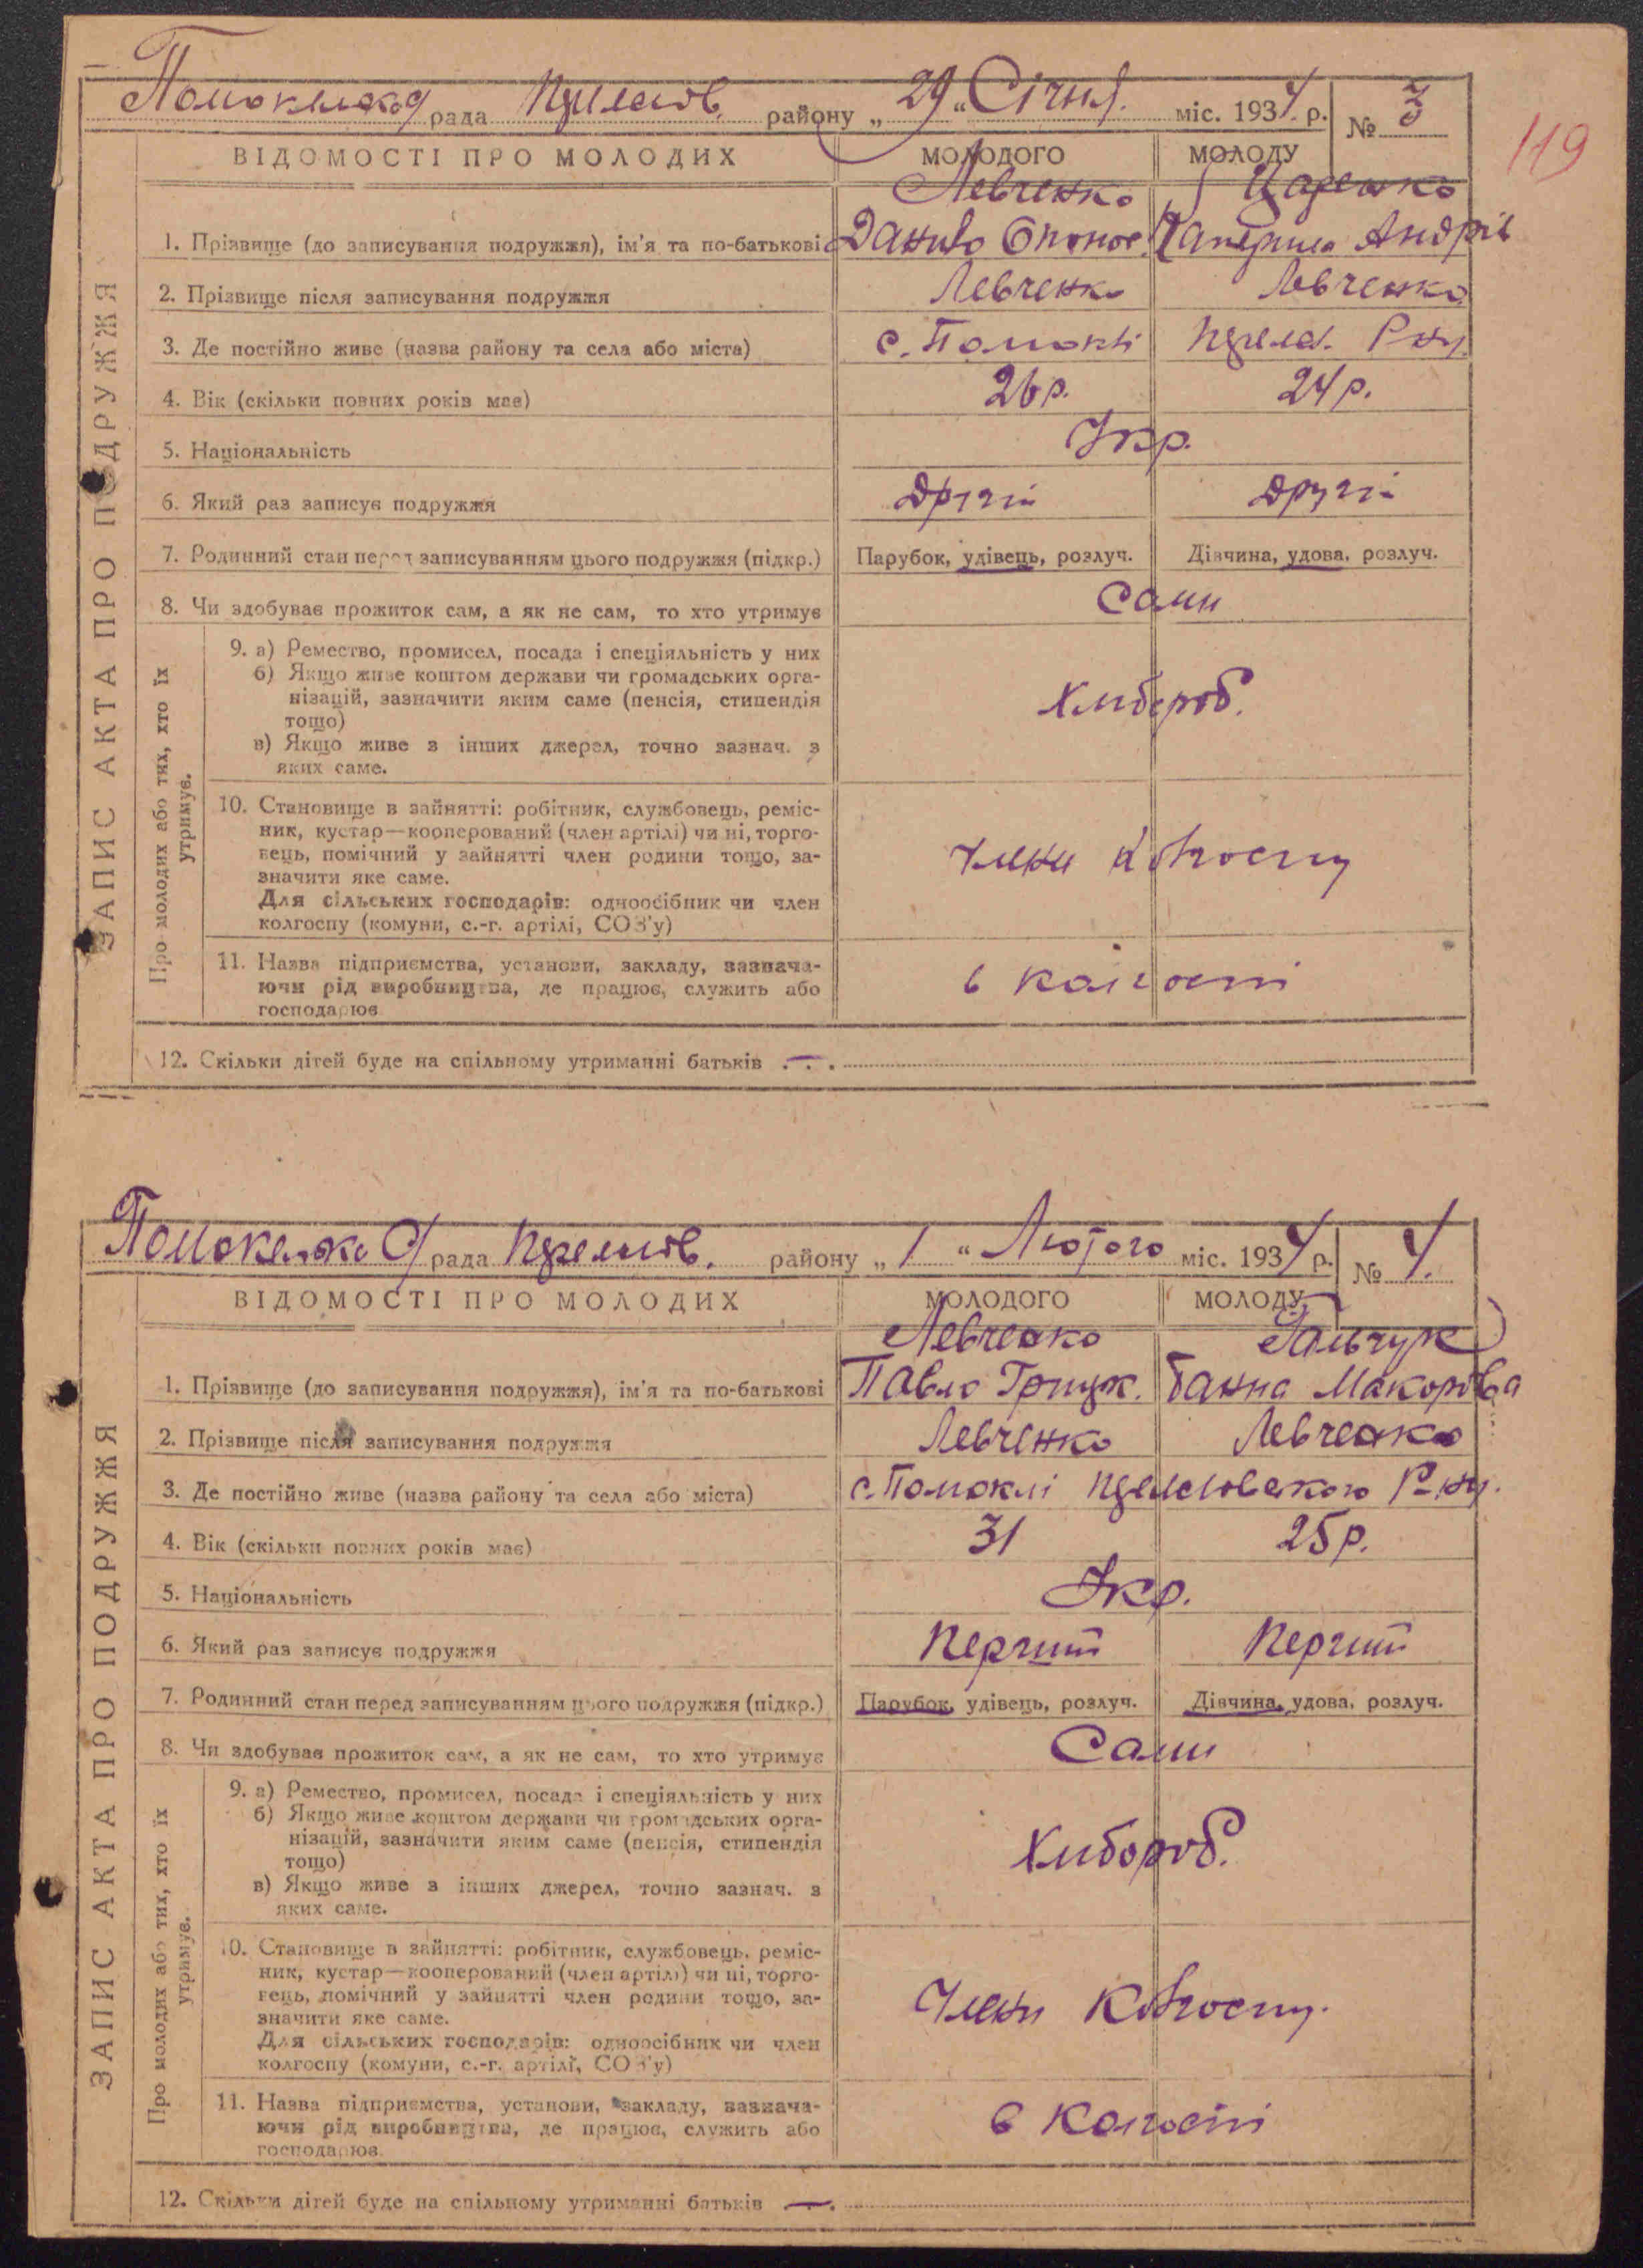 Помокельск с/рада Переяслов. району „29“ Січня міс. 1934 р. № 3
119
ВІДОМОСТІ ПРО МОЛОДИХ МОЛОДОГО МОЛОДУ
ЗАПИС АКТА ПРО ПОДРУЖЖЯ
Левченко
1. Прізвище (до записування подружжя), ім'я та по-батькові Данило Андрів
2. Прізвище після записування подружжя Левченко Левченко
3. Де постійно живе (назва району та села або міста) с. Помоклі
4. Вік (скільки повних років має) 26 р. 24 р.
5. Національність Укр.
6. Який раз записує подружжя Другій Другій
7. Родинний стан перед записуванням цього подружжя (підкр.) Парубок, удівець, розлуч. Дівчина, удова, розлуч.
8. Чи здобуває прожиток сам, а як не сам, то хто утримує Сами
Про молодих або тих, хто їх
утримує.
9. а) Ремество, промисел, посада і спеціяльність у них
б) Якщо живе коштом держави чи громадських орга-
нізацій, зазначити яким саме (пенсія, стипендія
тощо)
Хлибороб.
в) Якщо живе з інших джерел, точно зазнач. з
яких саме.
10. Становище в зайнятті: робітник, службовець, реміс-
ник, кустар—кооперований (член артілі) чи ні, торго-
вець, помічний у зайнятті член родини тощо, за-
значити яке саме.
Члени колгоспу
Для сільських господарів: одноосібник чи член
колгоспу (комуни, с.-г. артілі, СОЗ'у)
11. Назва підприємства, установи, закладу, зазнача-
ючи рід виробництва, де працює, служить або
господарює
в колгоспі
12. Скільки дітей буде на спільному утриманні батьків —
рада району „1“ Лютого міс. 1934 р. № 4.
ВІДОМОСТІ ПРО МОЛОДИХ МОЛОДОГО МОЛОДУ
ЗАПИС АКТА ПРО ПОДРУЖЖЯ
Левченко Гальчук
1. Прізвище (до записування подружжя), ім'я та по-батькові Павло Грицк. Ганна Макорова
2. Прізвище після записування подружжя Левченко Левченко
3. Де постійно живе (назва району та села або міста) с. Помоклі Р-ну.
4. Вік (скільки повних років має) 31 25 р.
5. Національність Укр.
6. Який раз записує подружжя Перший Перший
7. Родинний стан перед записуванням цього подружжя (підкр.) Парубок, удівець, розлуч. Дівчина, удова, розлуч.
8. Чи здобуває прожиток сам, а як не сам, то хто утримує Сами
Про молодих або тих, хто їх
утримує.
9. а) Ремество, промисел, посада і спеціяльність у них
б) Якщо живе коштом держави чи громадських орга-
нізацій, зазначити яким саме (пенсія, стипендія
тощо)
Хлибороб.
в) Якщо живе з інших джерел, точно зазнач. з
яких саме.
10. Становище в зайнятті: робітник, службовець, реміс-
ник, кустар—кооперований (член артілі) чи ні, торго-
вець, помічний у зайнятті член родини тощо, за-
значити яке саме.
Члени Колгоспу.
Для сільських господарів: одноосібник чи член
колгоспу (комуни, с.-г. артілі, СОЗ'у)
11. Назва підприємства, установи, закладу, зазнача-
ючи рід виробництва, де працює, служить або
господарює
в Колгоспі
12. Скільки дітей буде на спільному утриманні батьків —